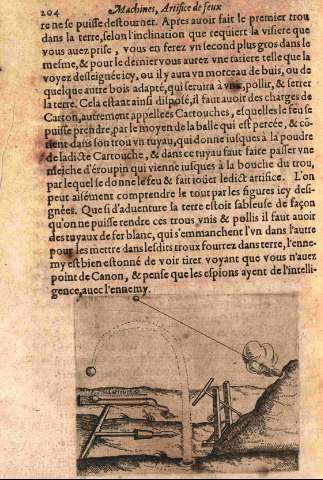 204 Machines, Artifice de feux
re ne se puisse destourner. Apres auoir fait le premier trou
dans la terre, selon l'inclination que requiert la visiere que
vous auez prise, vous en ferez vn second plus gros dans le
mesme, & pour le dernier vous aurez vne tariere telle que la
voyez desseignée icy, ou il y aura vn morceau de buis, ou de
quelque autre bois adapté, qui seruira à vnir, pollir, & serrer
la terre. Cela estant ainsi disposé, il faut auoir des charges de
Carton, autrement appellees Cartouches, esquelles le feu se
puisse prendre, par le moyen de la balle qui est percée, & cō-
tient dans son trou vn tuyau, qui donne iusques à la poudre
de ladicte Cartouche, & dans ce tuyau faut faire passer vne
meiche d'éroupin qui vienne iusques à la bouche du trou,
par lequel se donne le feu & fait iouër ledict artifice. L'on
peut aisément comprendre le tout par les figures icy desi-
gnées. Que si d'aduenture la terre estoit sableuse de façon
qu'on ne puisse rendre ces trous vnis & pollis il faut auoir
des tuyaux de fer blanc, qui s'emmanchent l'vn dans l'autre
pour les mettre dans lesdits troux fourrez dans terre, l'enne-
my est bien estonné de voir tirer voyant que vous n'auez
point de Canon, & pense que les espions ayent de l'intelli-
gence auec l'ennemy.